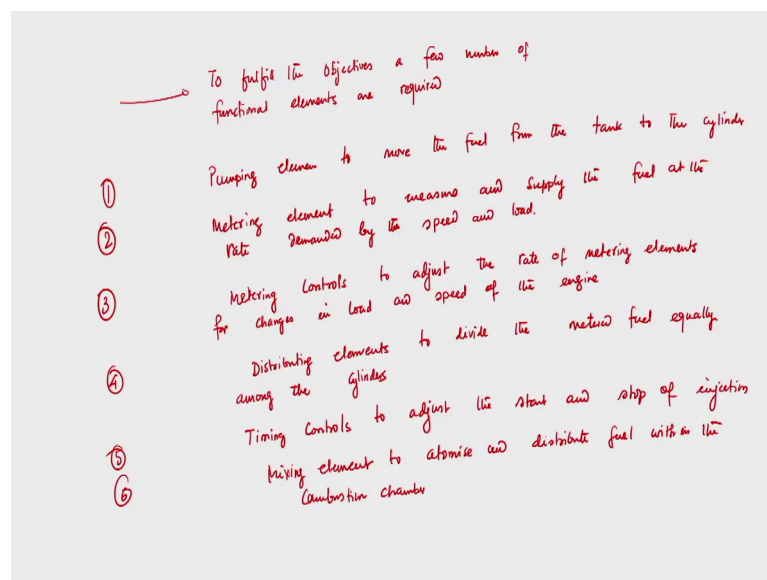 To fulfil the Objectives a few number of
functional elements are required
① Pumping elemen to move the fuel from the tank to the cylinder
② Metering element to measure and supply the fuel at the
rate demanded by the speed and load.
③ Metering Controls to adjust the rate of metering elements
for changes in load and speed of the engine
④ Distributing elements to divide the metered fuel equally
among the cylinders
⑤ Timing Controls to adjust the start and stop of injection
⑥ Mixing element to atomise and distribute fuel with in the
Combustion chamber